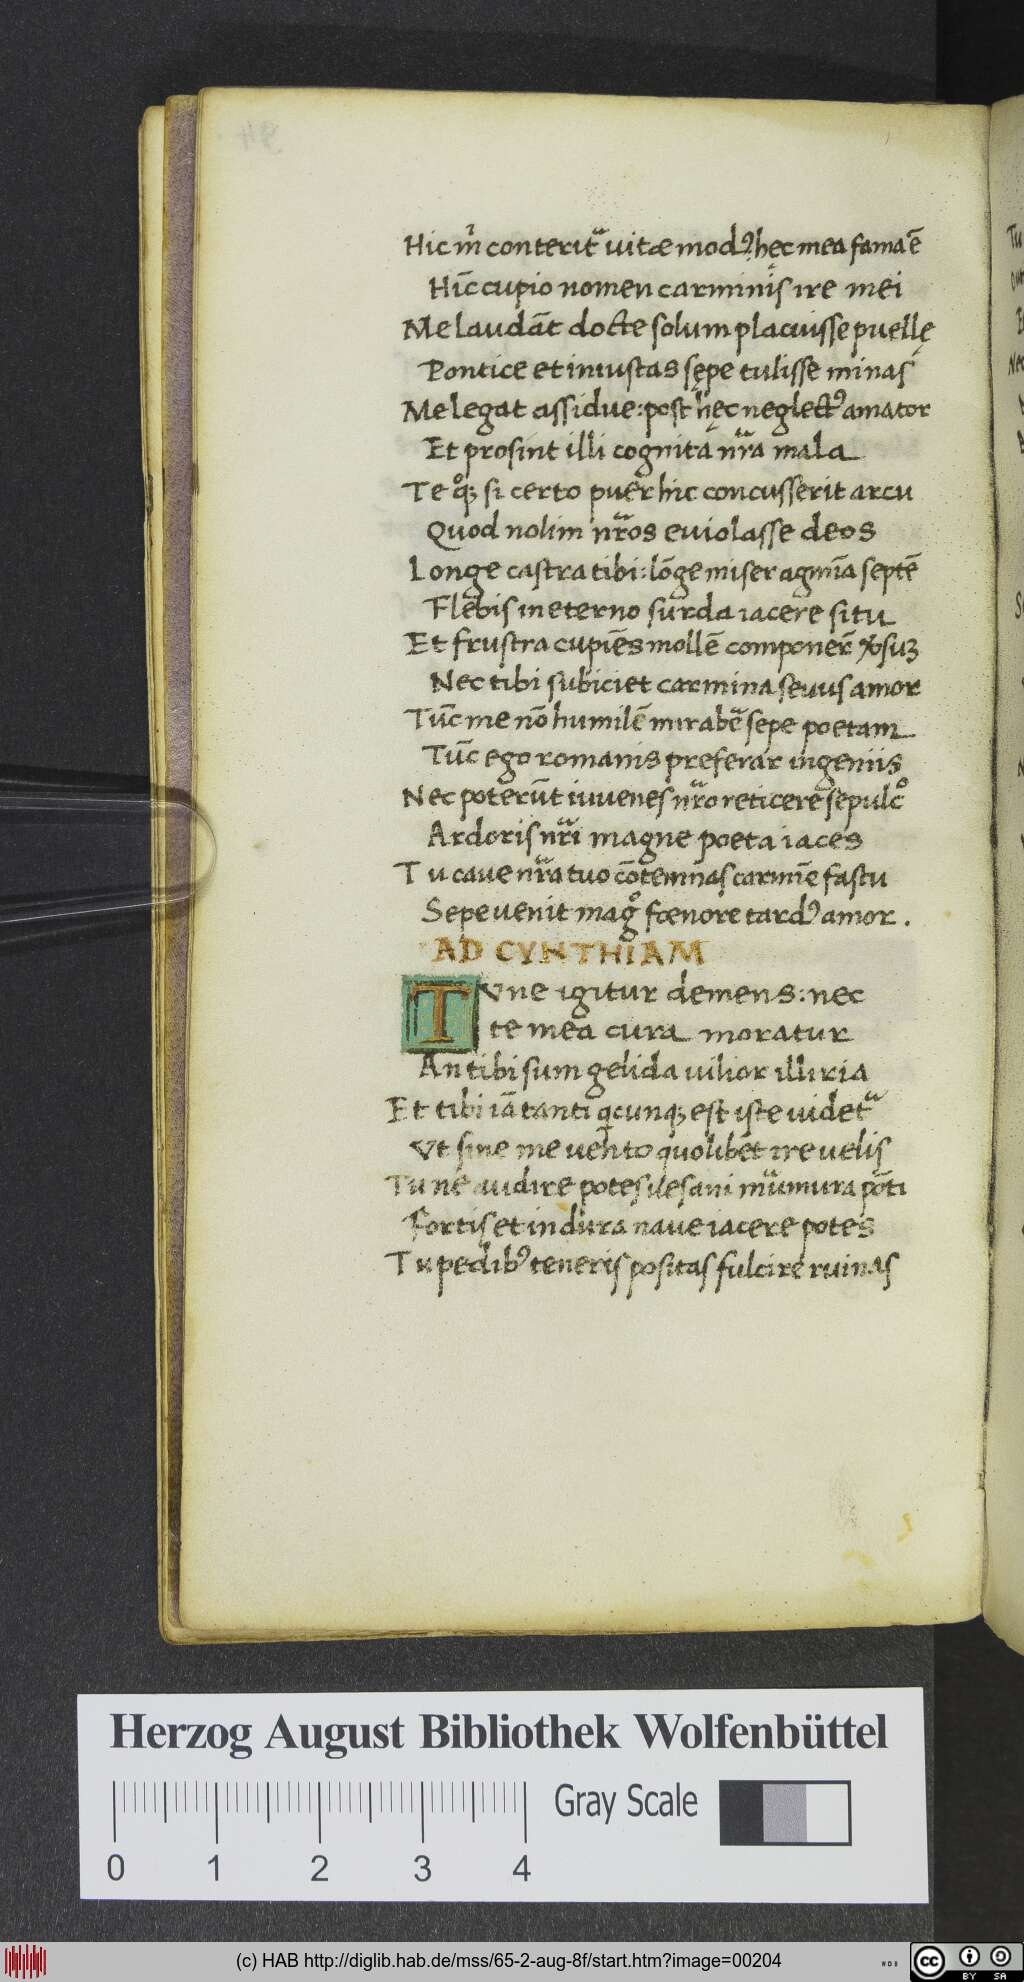 94
Hic m̃ conterit᷑ uitæ modꝰ hęc mea fama ē
Hīc cupio nomen carminis ire mei
Me laudāt docte solum placuisse puellę
Pontice et iniustas sępe tulisse minas
Me legat assidue: post hęc neglectꝰ amator
Et prosint illi cognita nr̃a mala
Te qͦꝫ si certo puer hic concusserit arcu
Quod nolim nr̃os euiolasse deos
Longe castra tibi: lōge miser agmīa septē
Flebis in eterno surda iacere situ
Et frustra cupiēs mollē componer̃
Nec tibi subiciet carmina seuus amor
Tūc me nō humilē mirabe᷑ sepe poetam
Tūc ego romanis preferar ingeniis
Nec poterūt iuuenes nr̃o reticere sepulcͦ
Ardoris nr̃i magne poeta iaces
Tu caue nr̃a tuo cōtemnas carmīe fastu
Sepe uenit magͦ fœnore tardꝰ amor.
AD CYNTHIAM
TVne igitur demens: nec
te mea cura moratur
An tibi sum gelida uilior illiria
Et tibi iā tanti qcunqꝫ est iste uidet᷑
Vt sine me uento quolibet ire uelis
Tu ne audire potes uesani mur̃mura pōti
Fortis et in dura naue iacere potes
Tu pedibꝰ teneris positas fulcire ruinas
Herzog August Bibliothek Wolfenbüttel
0 1 2 3 4
Gray Scale
(c) HAB http://diglib.hab.de/mss/65-2-aug-8f/start.htm?image=00204
cc BY SA